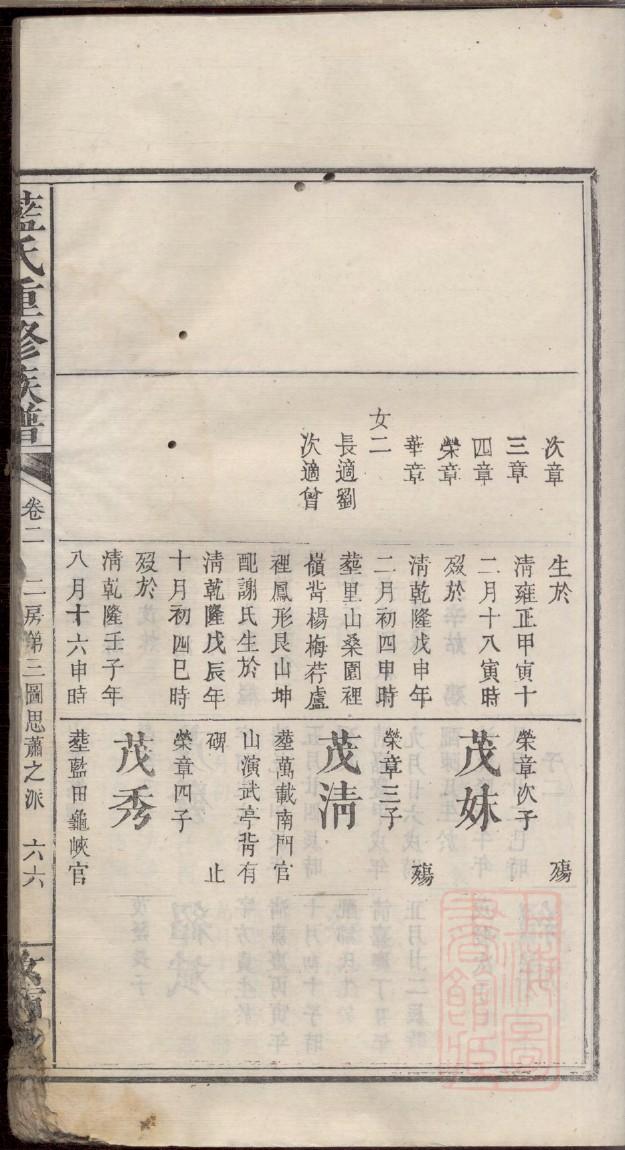 次章
三章
四章
榮章
華章
女二
長適劉
次適曾
生於
清雍正甲寅十
二月十八寅時
歿於
清乾隆戊申年
二月初四申時
塟里山桑園裡
嶺背楊梅荇盧
裡鳳形艮山坤
配謝氏生於
清乾隆戊辰年
十月初四巳時
歿於
清乾隆壬子年
八月十六申時
殤
榮章次子
茂妹
殤
榮章三子
茂清
塟萬載南門官
山演武亭背有
碑 止
榮章四子
茂秀
塟藍田龜峽官
藍氏重修族譜
卷二
二房第三圖思蕭之派
六六